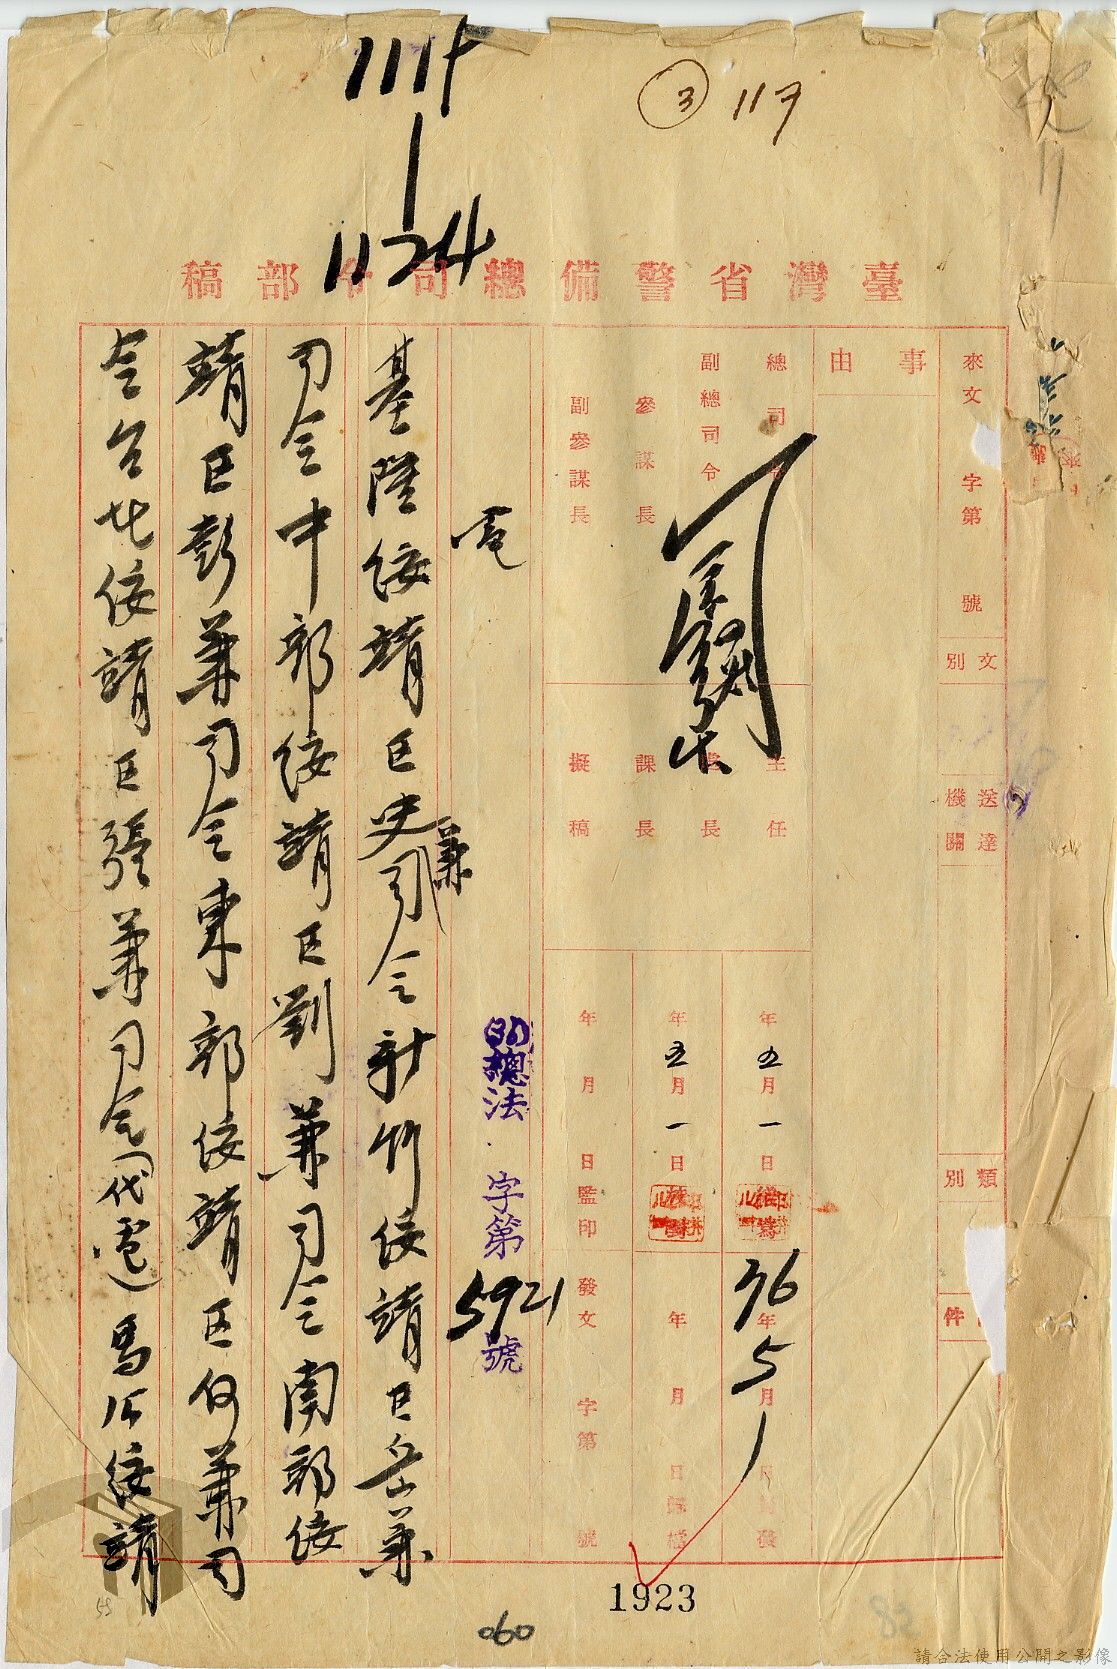 1115
1
1124
③ 117
臺灣省警備總司令部稿
來文 字第 號
文別
送達機關
類別
件
事由
總司
副總司令
參謀長
副參謀長
主任
長
課長
擬稿
年五月一日
年五月一日
年 月 日監印
36年5月1日
年 月 日歸檔
發文 字第 號
總法 字第5921號
電
基隆綏靖區史兼司令新竹綏靖區岳兼
司令中部綏靖區劉兼司令南部綏
靖區彭兼司令東部綏靖區何兼司
令台北綏靖區張兼司令(代電)馬公綏靖
1923
060
請合法使用公開之影像